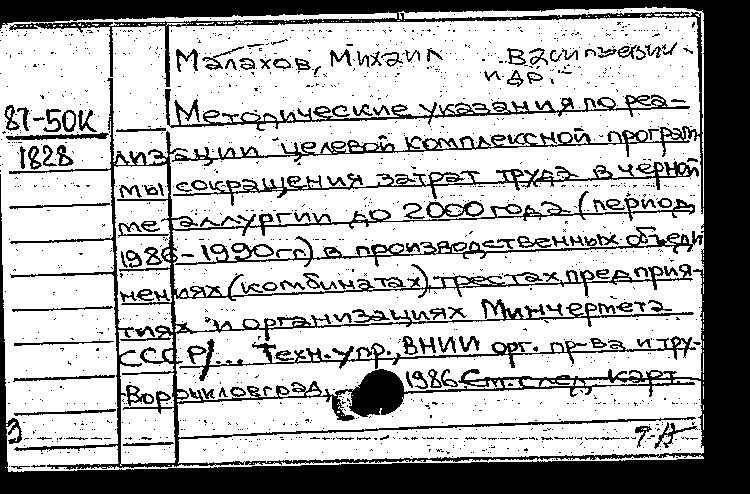 Малахов, Михаил Васильевич
и др.
87-50К
1828
Методические указания по реа-
лизации целевой комплексной програм-
мы сокращения затрат труда в черной
металлургии до 2000 года (период
1986-1990гг) в производственных объеди
нениях (комбинатах), трестах, предприя-
тиях и организациях Минчермета
СССР/... Техн. упр., ВНИИ орг. пр-ва и тру-
Ворошиловград, 1986. См. след. карт.